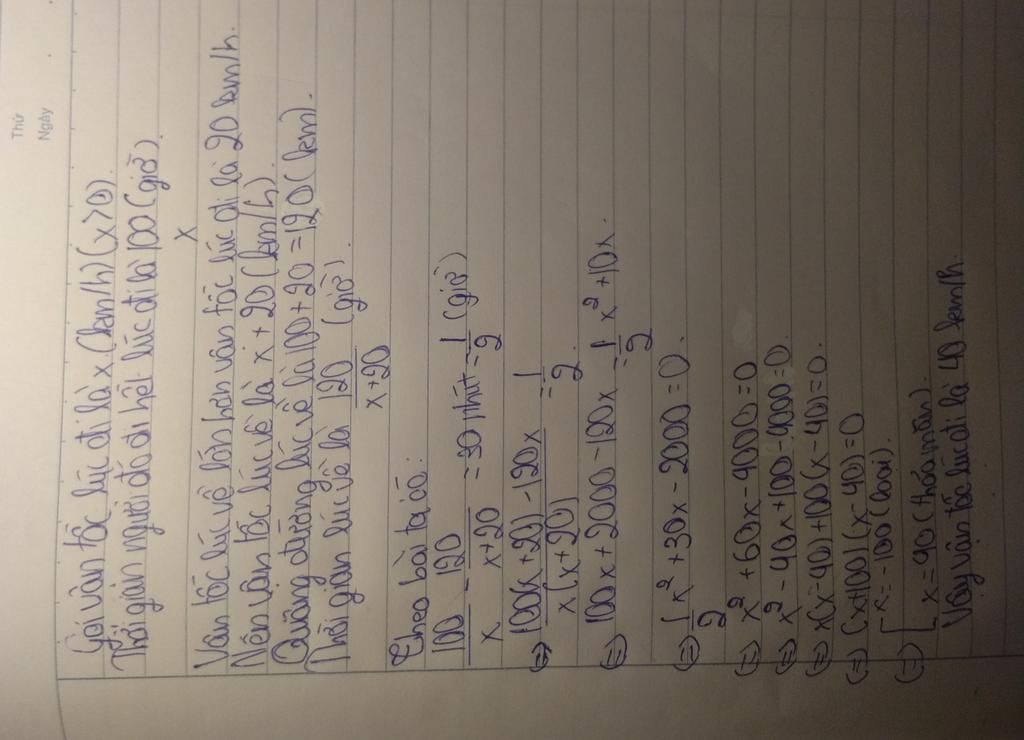 Thứ
Ngày
Gọi vận tốc lúc đi là x (km/h) (x>0).
Thời gian người đó đi hết lúc đi là 100 (giờ).
x
Vận tốc lúc về lớn hơn vận tốc lúc đi là 20 km/h.
Nên vận tốc lúc về là x + 20 (km/h).
Quãng đường lúc về là 100 + 20 = 120 (km).
Thời gian lúc về là 120 (giờ).
x+20
Theo bài ta có:
100 - 120 = 30 phút = 1 (giờ)
x x+20 2
(=) 100(x+20) - 120x = 1
x(x+20) 2
(=) 100x + 2000 - 120x = 1 x² + 10x.
2
(=) 1 x² + 30x - 2000 = 0.
2
(=) x² + 60x - 4000 = 0
(=) x² - 40x + 100 - 4000 = 0.
(=) x(x-40) + 100(x-40) = 0.
(=) (x+100)(x-40) = 0
(=) [ x = -100 (loại).
x = 40 (thỏa mãn).
Vậy vận tốc lúc đi là 40 km/h.